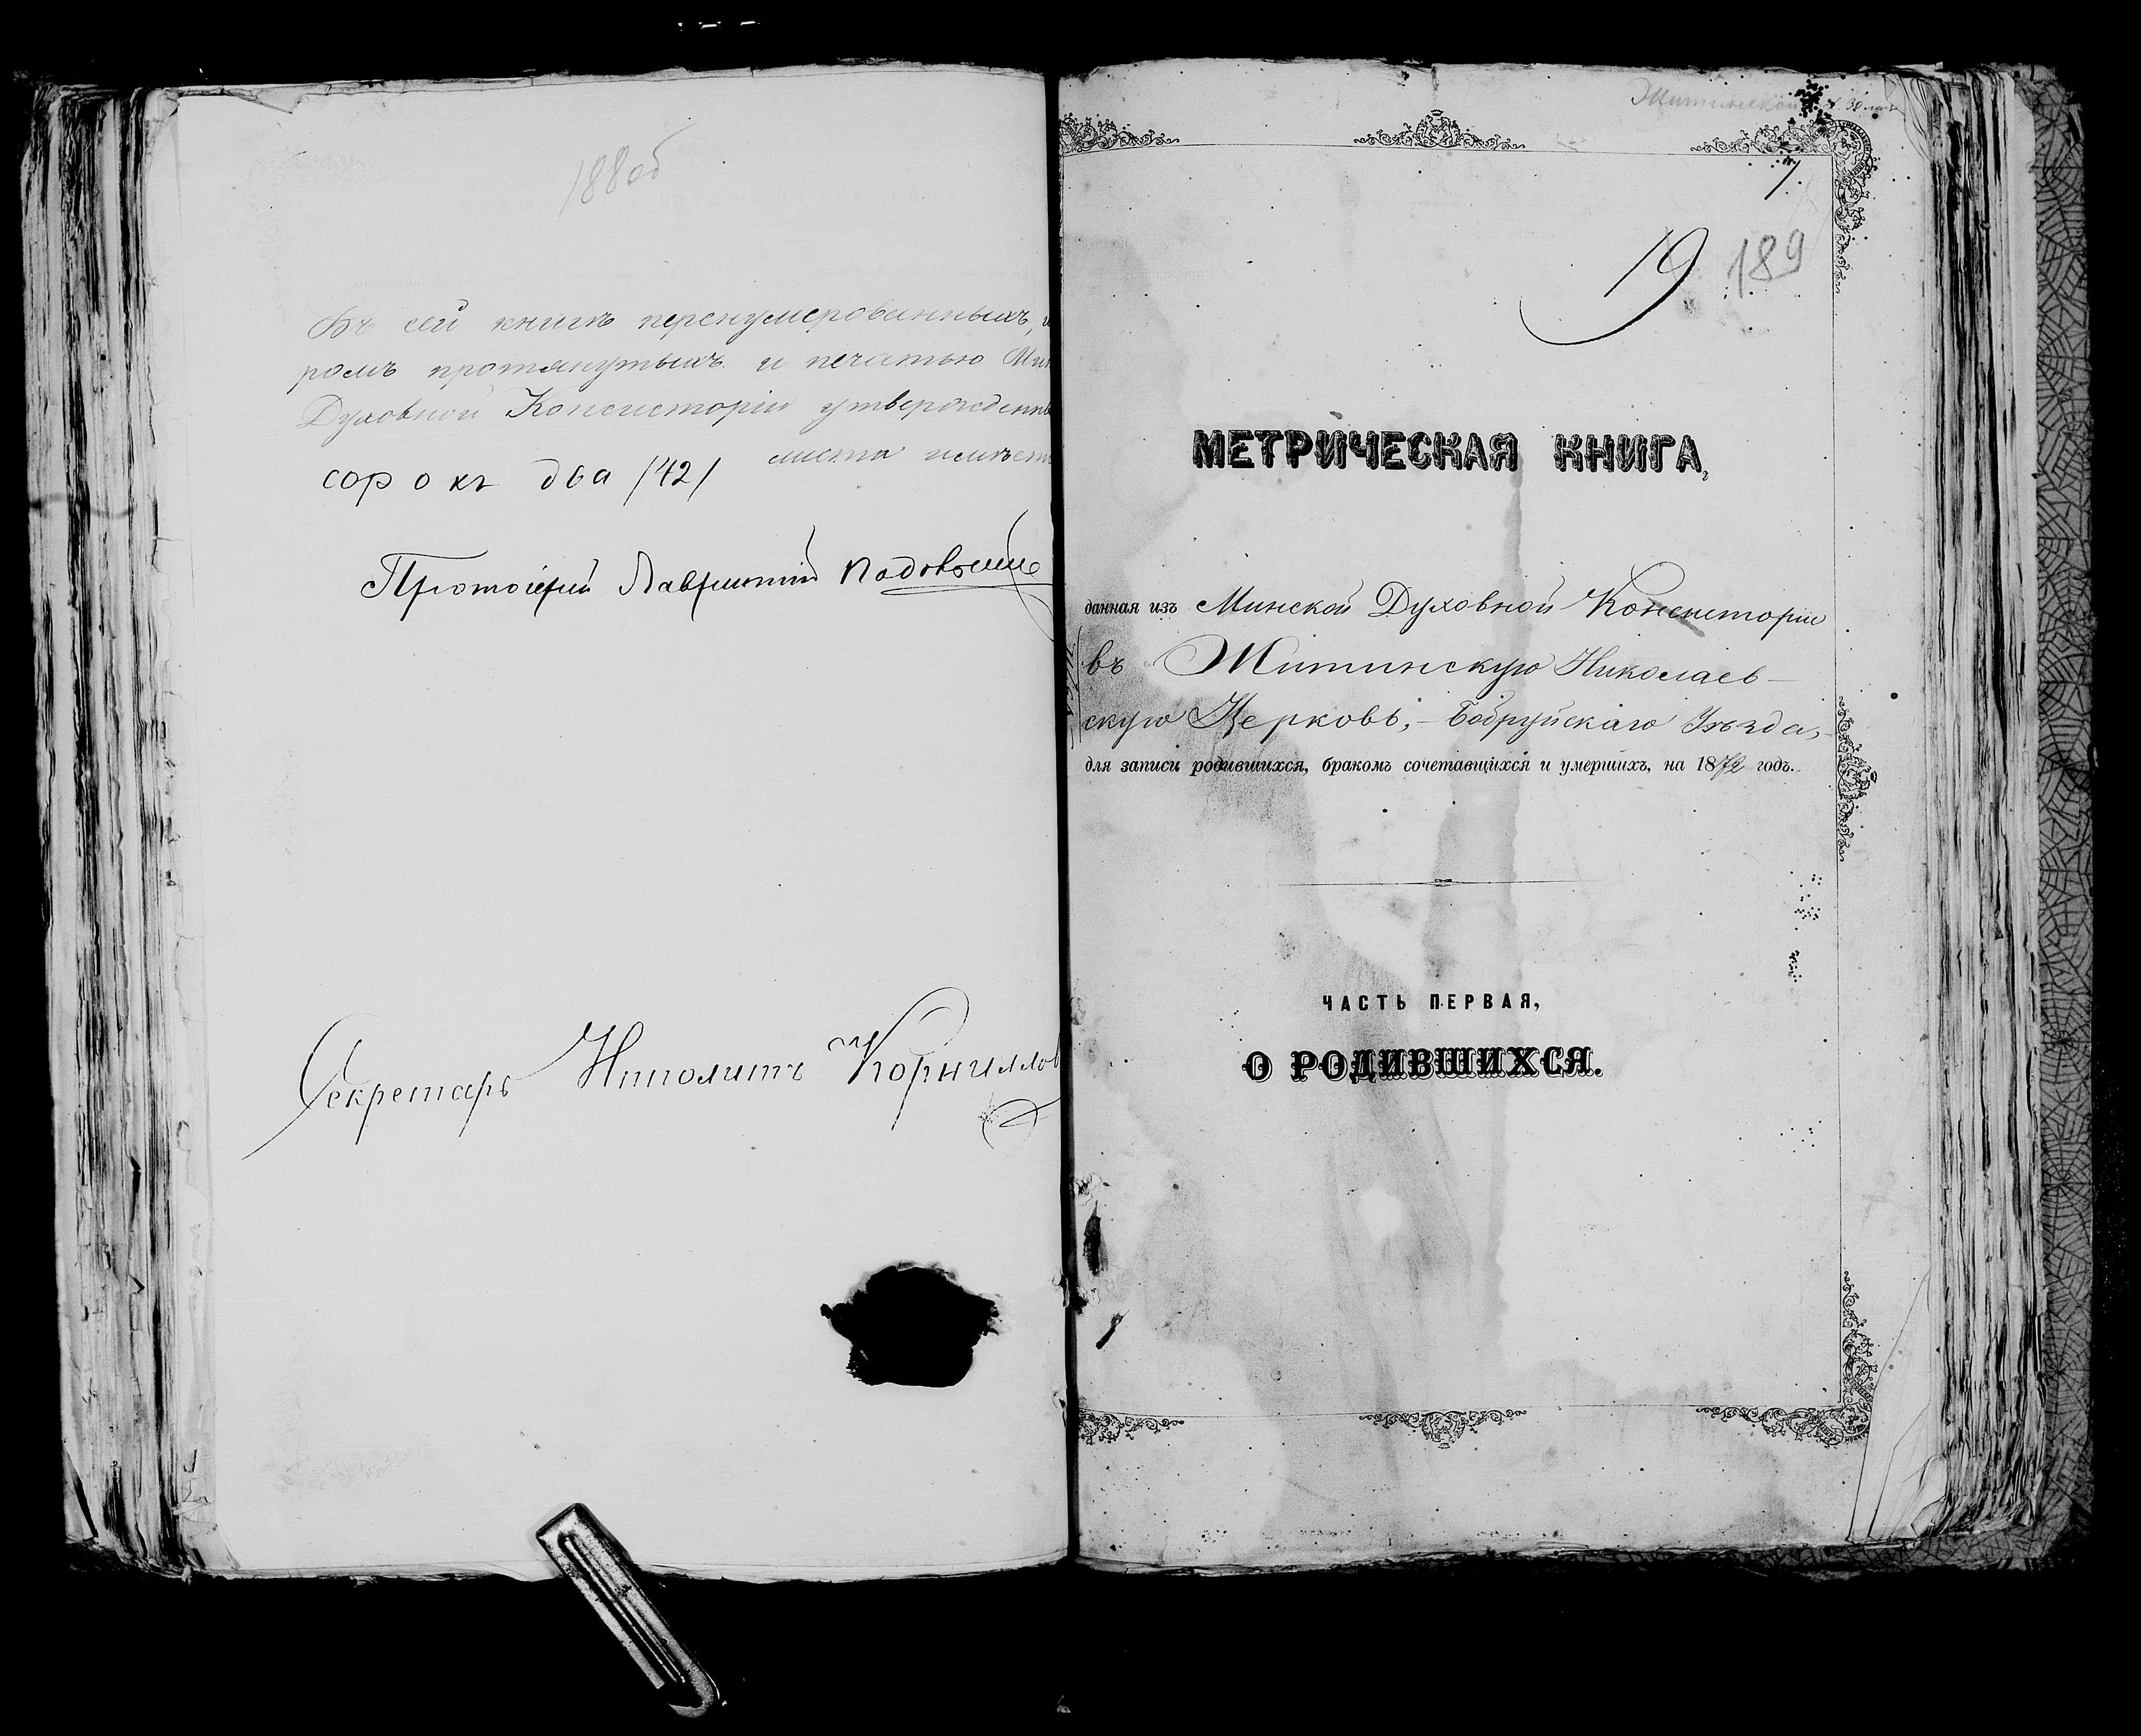 188об
Въ сей книгѣ перенумерованныхъ,
ромъ протянутыхъ и печатью Мин
Духовной Консисторіи утвержденны
листа имѣет
сорокъ два /42/
Протоіерей Лаврентій
Секретарь Ипполитъ Корниллов
Житинской
7.
19 189
МЕТРИЧЕСКАЯ КНИГА,
данная изъ Минской Духовной Консисторіи
въ Житинскую Николаев-
скую Церковь, Бобруйскаго Уѣзда,
для записи родившихся, бракомъ сочетавшихся и умершихъ, на 1872 годъ.
ЧАСТЬ ПЕРВАЯ,
О РОДИВШИХСЯ.